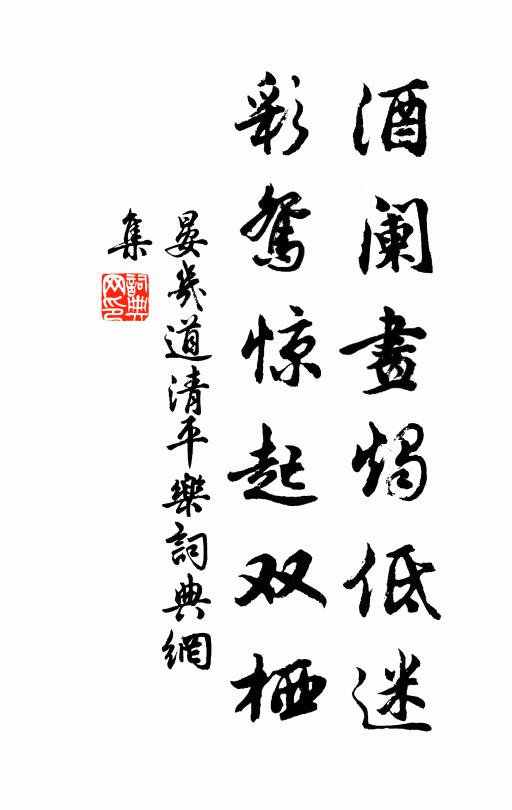 酒阑畫燭低迷
彩鸳惊起双栖
晏幾道清平樂詞典網
集
詞典网印